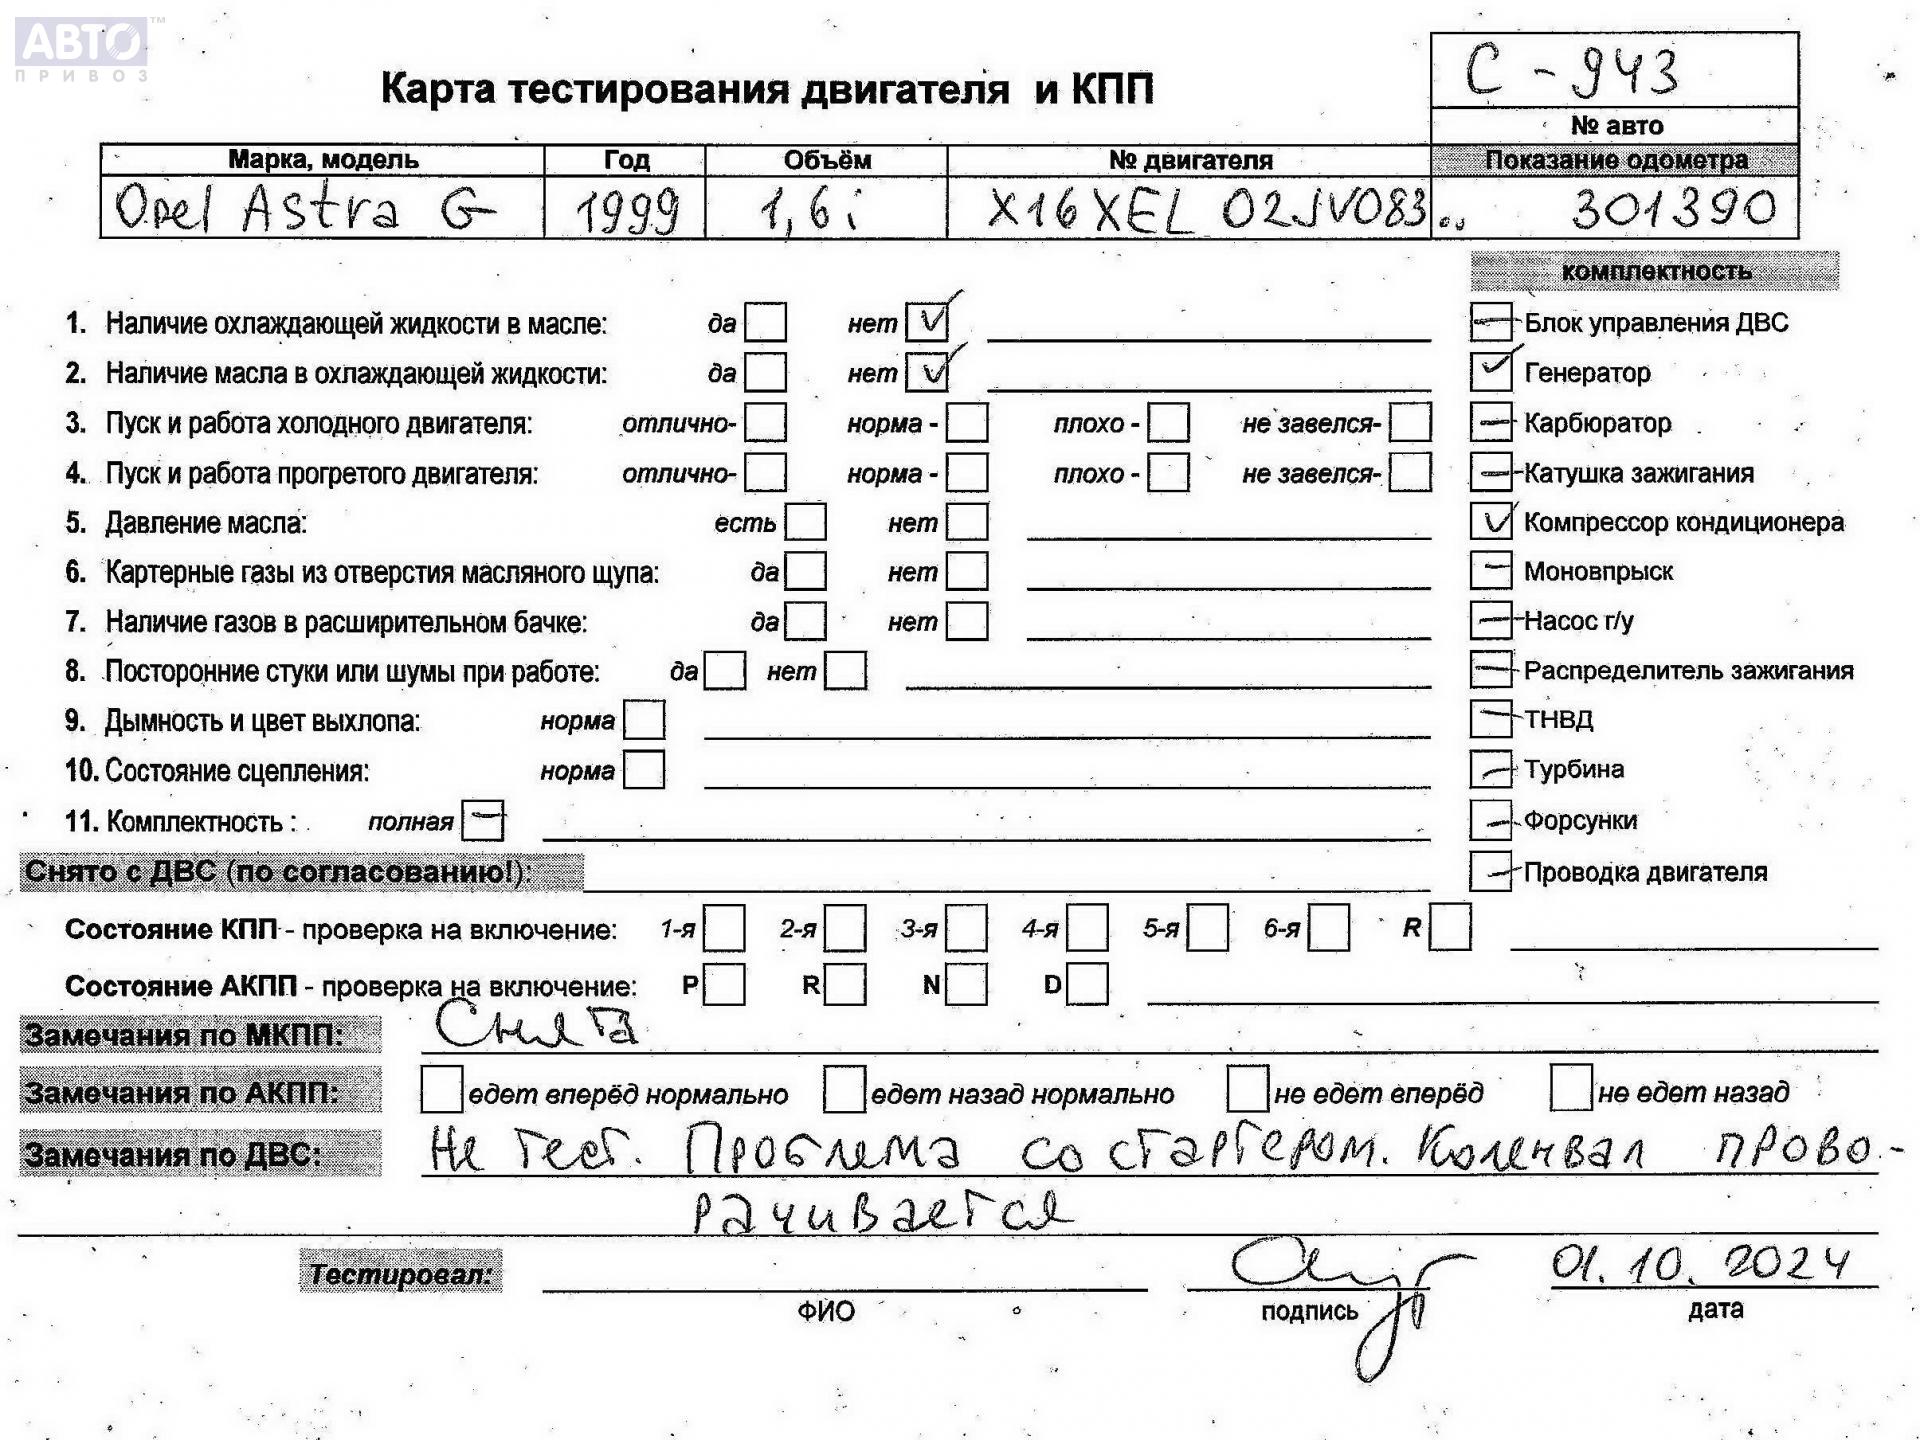 АВТО™
ПРИВОЗ
С - 943
Карта тестирования двигателя и КПП
№ авто
Марка, модель Год Объём № двигателя Показание одометра
Opel Astra G 1999 1,6i X16XEL 02JV083.. 301390
комплектность
1. Наличие охлаждающей жидкости в масле: да нет Блок управления ДВС
2. Наличие масла в охлаждающей жидкости: да нет Генератор
3. Пуск и работа холодного двигателя: отлично- норма - плохо - не завелся- Карбюратор
4. Пуск и работа прогретого двигателя: отлично- норма - плохо - не завелся- Катушка зажигания
5. Давление масла: есть нет Компрессор кондиционера
6. Картерные газы из отверстия масляного щупа: да нет Моновпрыск
7. Наличие газов в расширительном бачке: да нет Насос г/у
8. Посторонние стуки или шумы при работе: да нет Распределитель зажигания
9. Дымность и цвет выхлопа: норма ТНВД
10. Состояние сцепления: норма Турбина
11. Комплектность : полная Форсунки
Снято с ДВС (по согласованию!): Проводка двигателя
Состояние КПП - проверка на включение: 1-я 2-я 3-я 4-я 5-я 6-я R
Состояние АКПП - проверка на включение: P R N D
Замечания по МКПП: Снята
Замечания по АКПП: едет вперёд нормально едет назад нормально не едет вперёд не едет назад
Замечания по ДВС: Не тест. Проблема со стартером. Коленвал прово-
рачивается
Тестировал: 01.10.2024
ФИО подпись дата